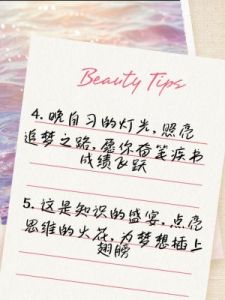 Beauty Tips
4.晚自习的灯光,照亮
追梦之路,愿你奋笔疾书
成绩飞跃
5.这是知识的盛宴,点亮
思维的火花,为梦想插上
翅膀